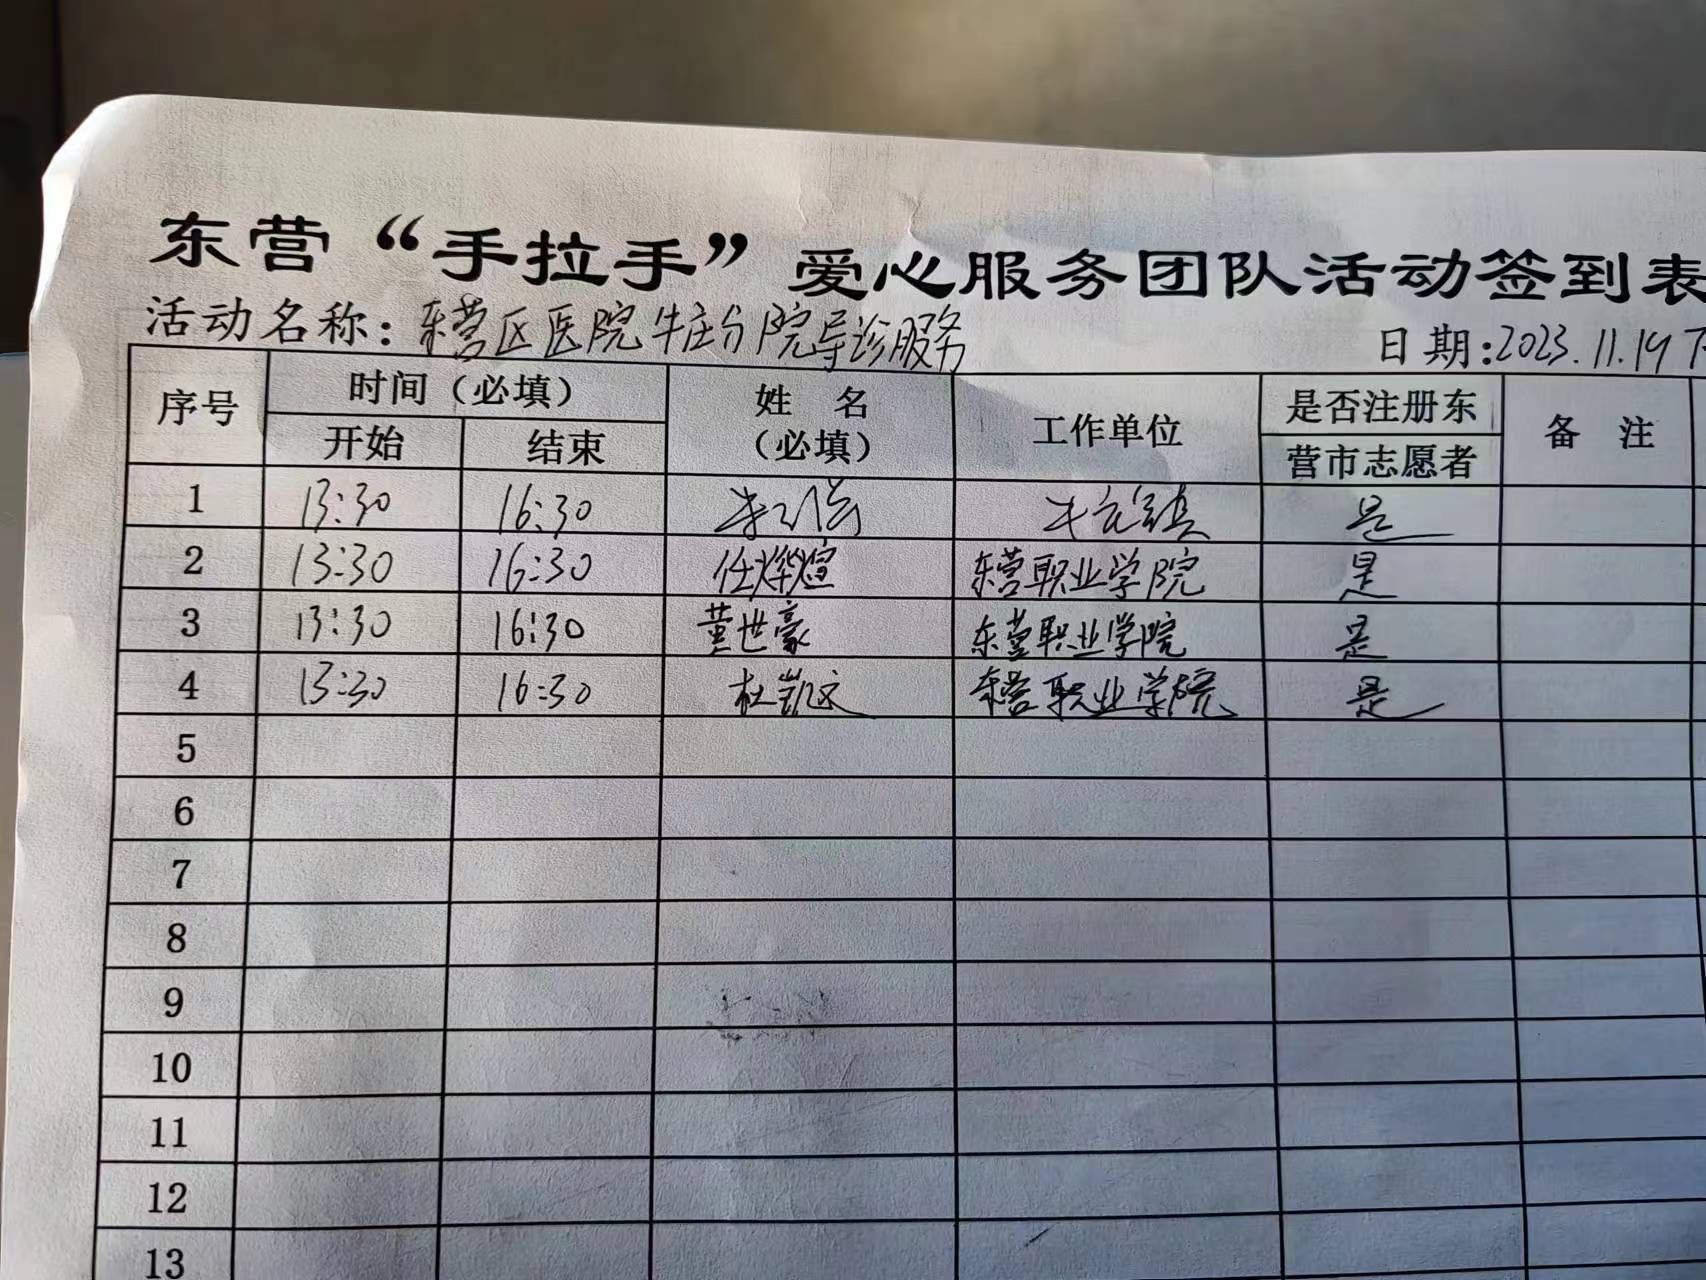 东营“手拉手”爱心服务团队活动签到表
活动名称：东营区医院牛庄分院导诊服务 日期：2023.11.19 下
序号 时间（必填） 姓 名（必填） 工作单位 是否注册东营市志愿者 备 注
开始 结束
1 13:30 16:30 牛庄镇 是
2 13:30 16:30 任烨煊 东营职业学院 是
3 13:30 16:30 董世豪 东营职业学院 是
4 13:30 16:30 杜凯文 东营职业学院 是
5
6
7
8
9
10
11
12
13